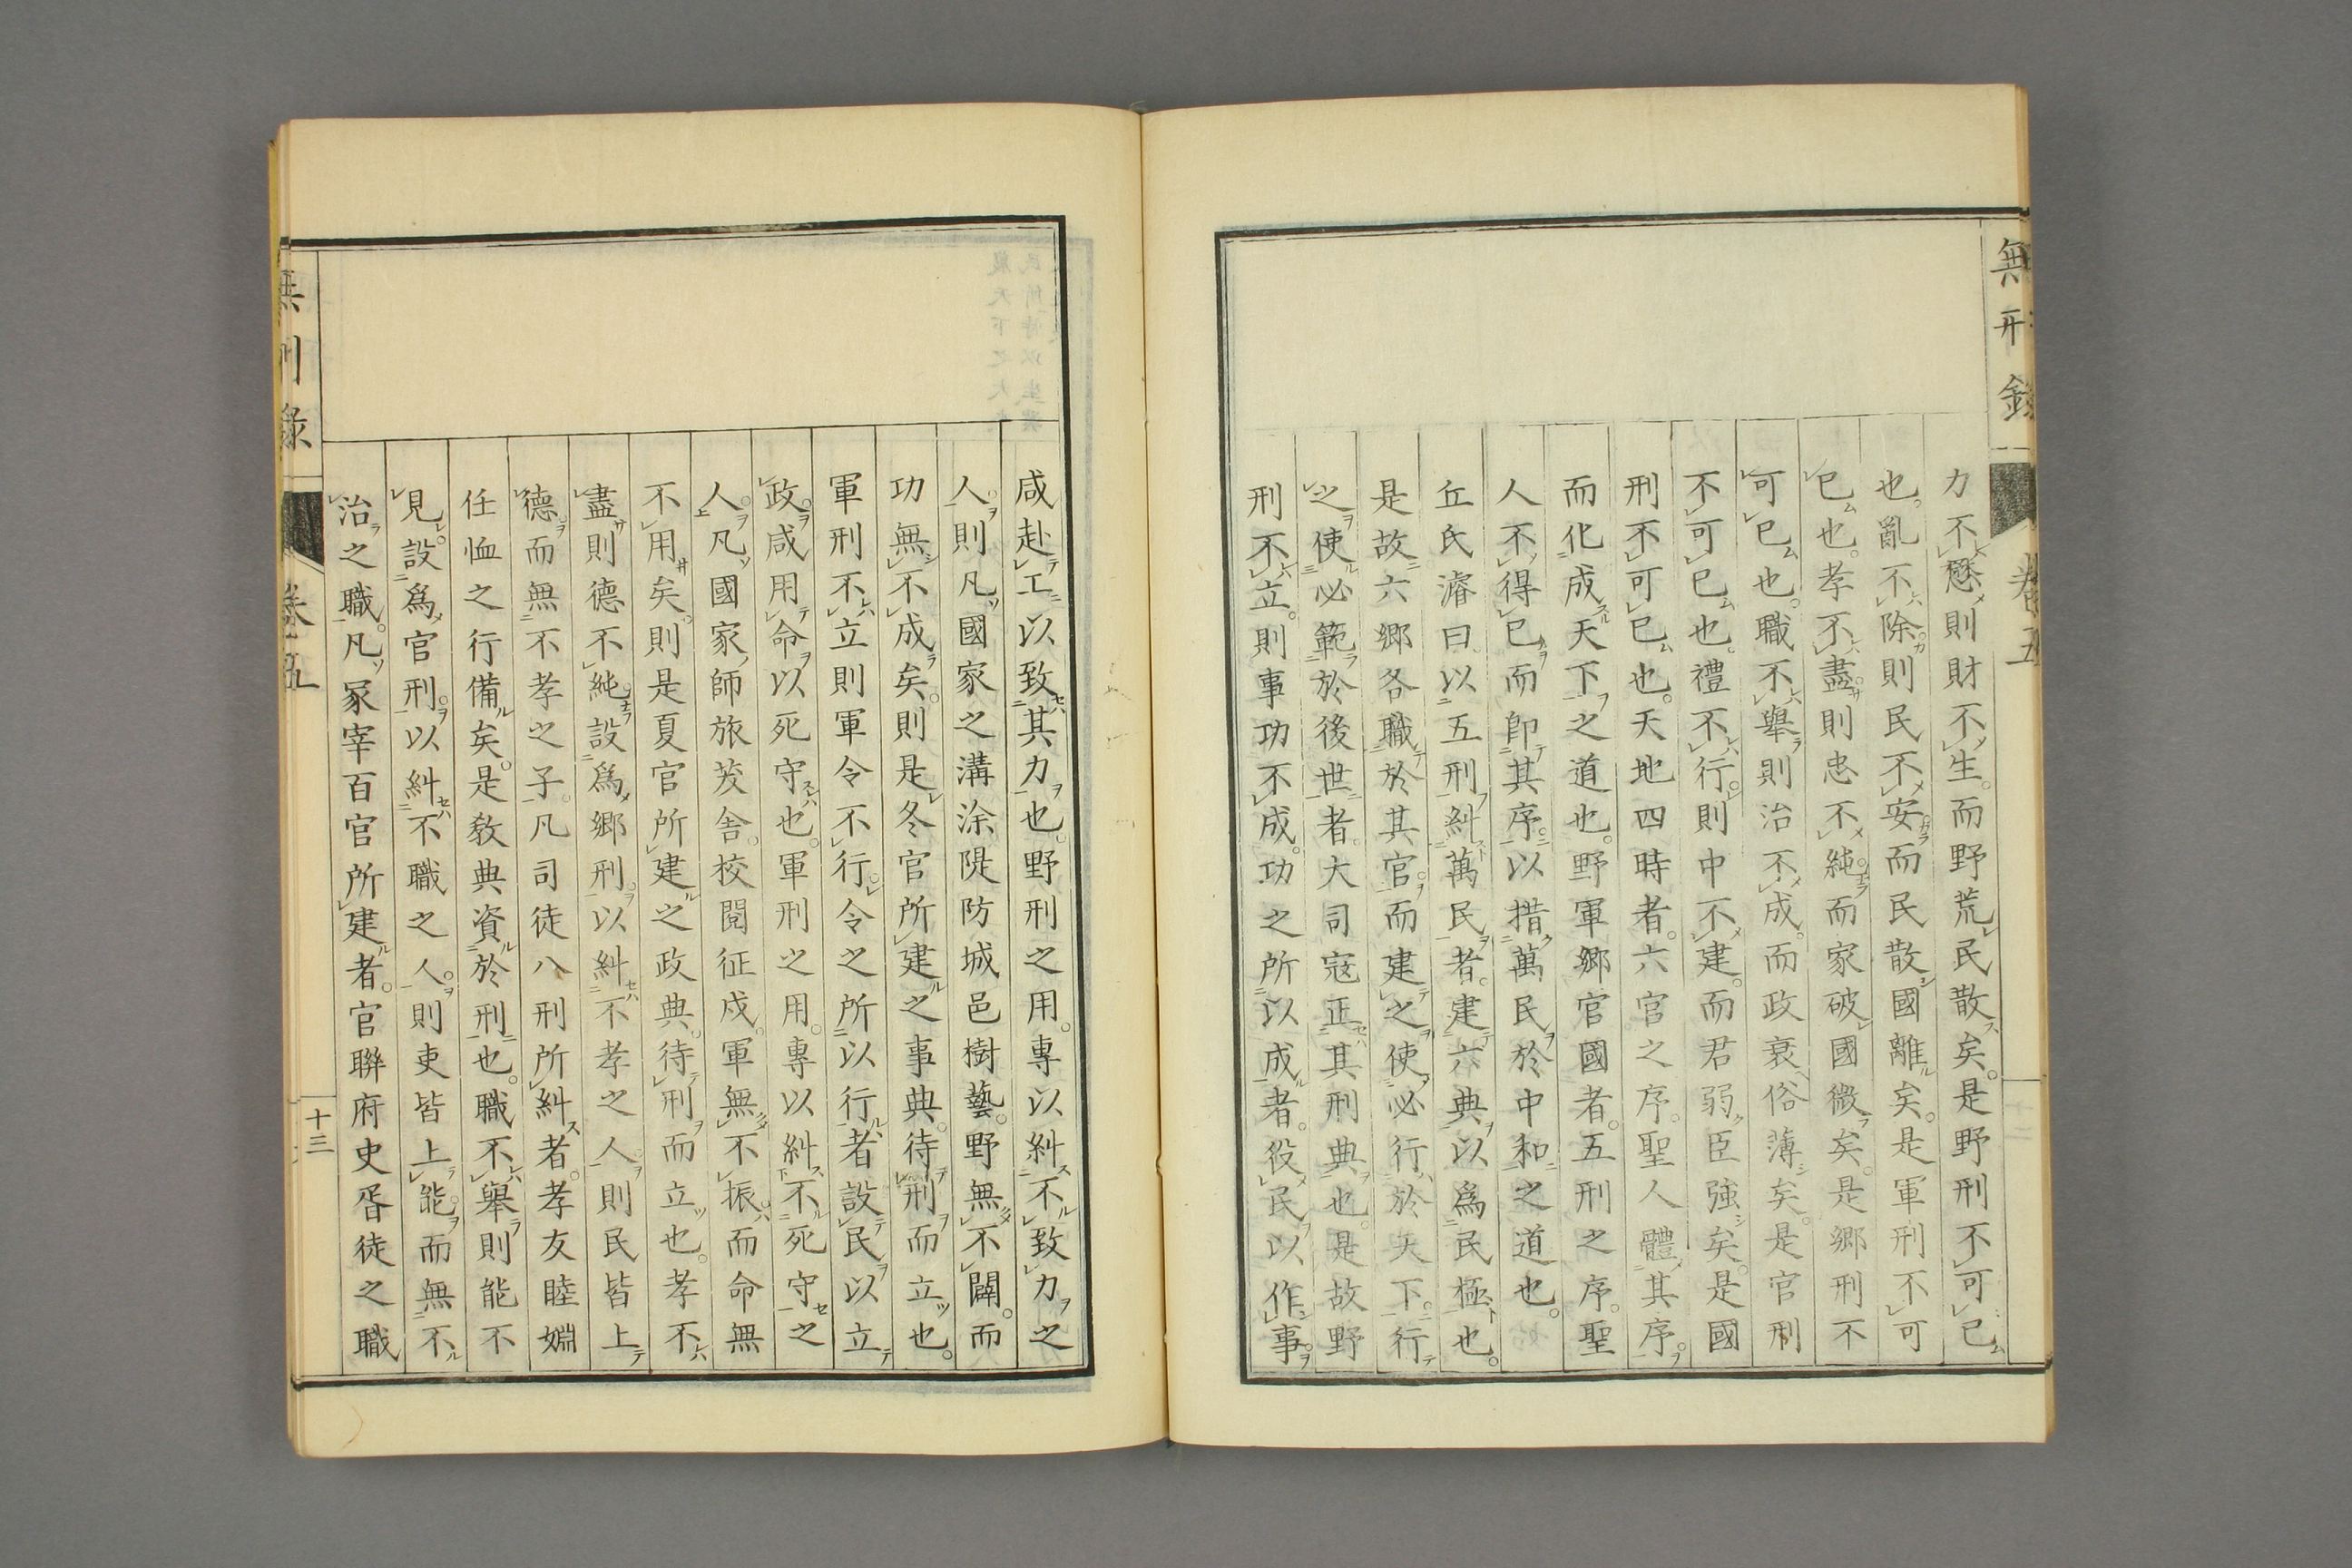 無刑錄
卷五
力不懋則財不生。而野荒民散矣。是野刑不可已
也。亂不除則民不安而民散國離矣。是軍刑不可
已也。孝不盡則忠不純而家破國微矣。是鄉刑不
可已也。職不舉則治不成。而政衰俗薄矣。是官刑
不可已也。禮不行則中不建。而君弱臣強矣。是國
刑不可已也。天地四時者。六官之序。聖人體其序。
而化成天下之道也。野軍鄉官國者。五刑之序。聖
人不得已而卽其序。以措萬民於中和之道也。
丘氏濬曰以五刑糾萬民者。建六典以爲民極也。
是故六鄉各職於其官。而建之使必行於天下。行
之使必範於後世者。大司寇正其刑典也。是故野
刑不立。則事功不成。功之所以成者。役民以作事。
咸赴工以致其力也。野刑之用。專以糾不致力之
人。則凡國家之溝涂隄防城邑樹藝。野無不闢。而
功無不成矣。則是冬官所建之事典。待刑而立也。
軍刑不立則軍令不行。令之所以行者設民以立
政。咸用命以死守也。軍刑之用。專以糾不死守之
人。凡國家師旅茇舍。校閱征戍。軍無不振而命無
不用矣。則是夏官所建之政典。待刑而立也。孝不
盡則德不純設爲鄉刑。以糾不孝之人則民皆上
德而無不孝之子。凡司徒八刑所糾者。孝友睦婣
任恤之行備矣。是敎典資於刑也。職不舉則能不
見。設爲官刑。以糾不職之人。則吏皆上能而無不
治之職。凡冢宰百官所建者。官聯府史胥徒之職
無刑錄
卷五
十三